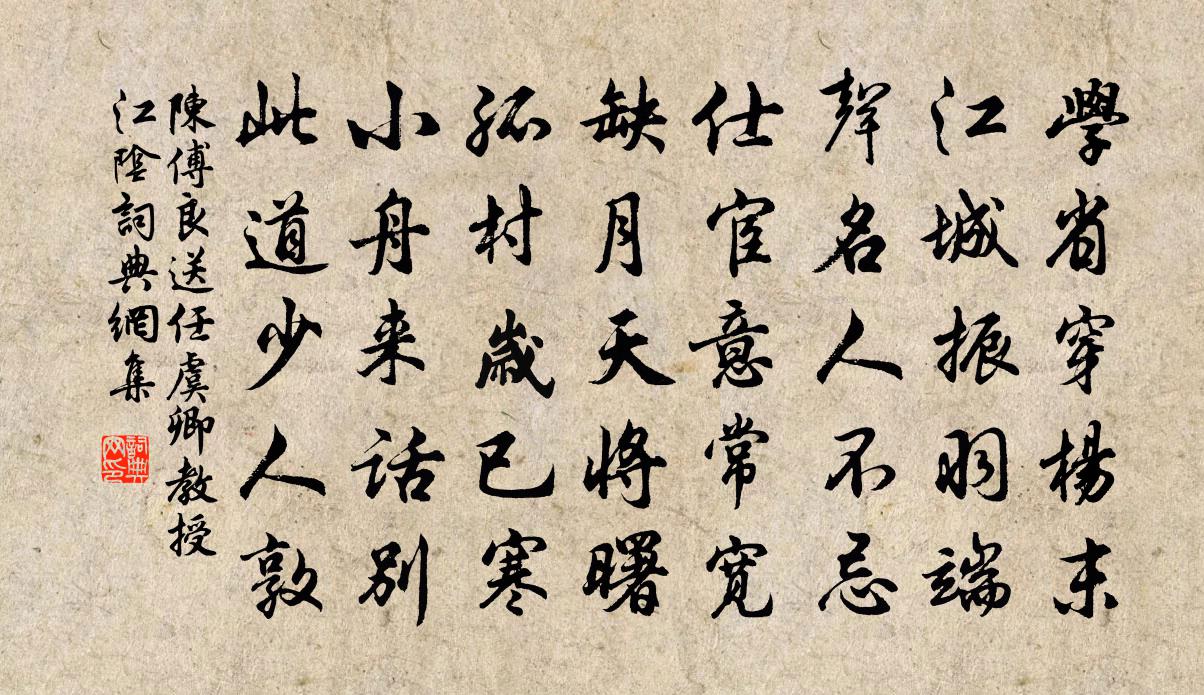 學省穿楊末
江城振羽端
聲名人不忌
仕宦意常寬
缺月天將曙
孤村歲已寒
小舟来話別
此道少人敦
陳傅良送任虞卿教授
江陰詞典網集
詞典
网印